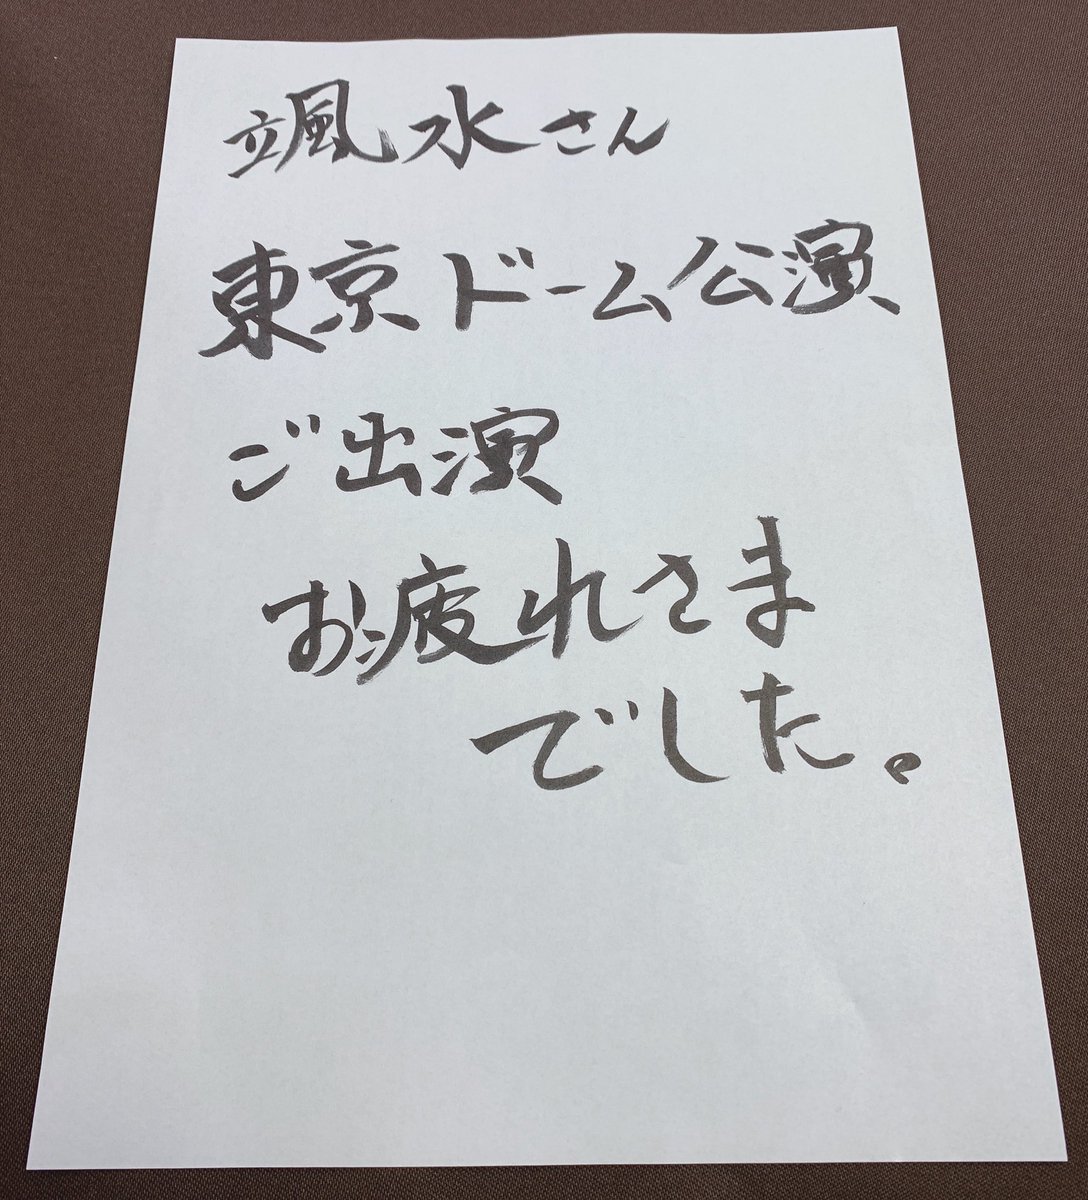 颯水さん
東京ドーム公演
ご出演
お疲れさま
でした。